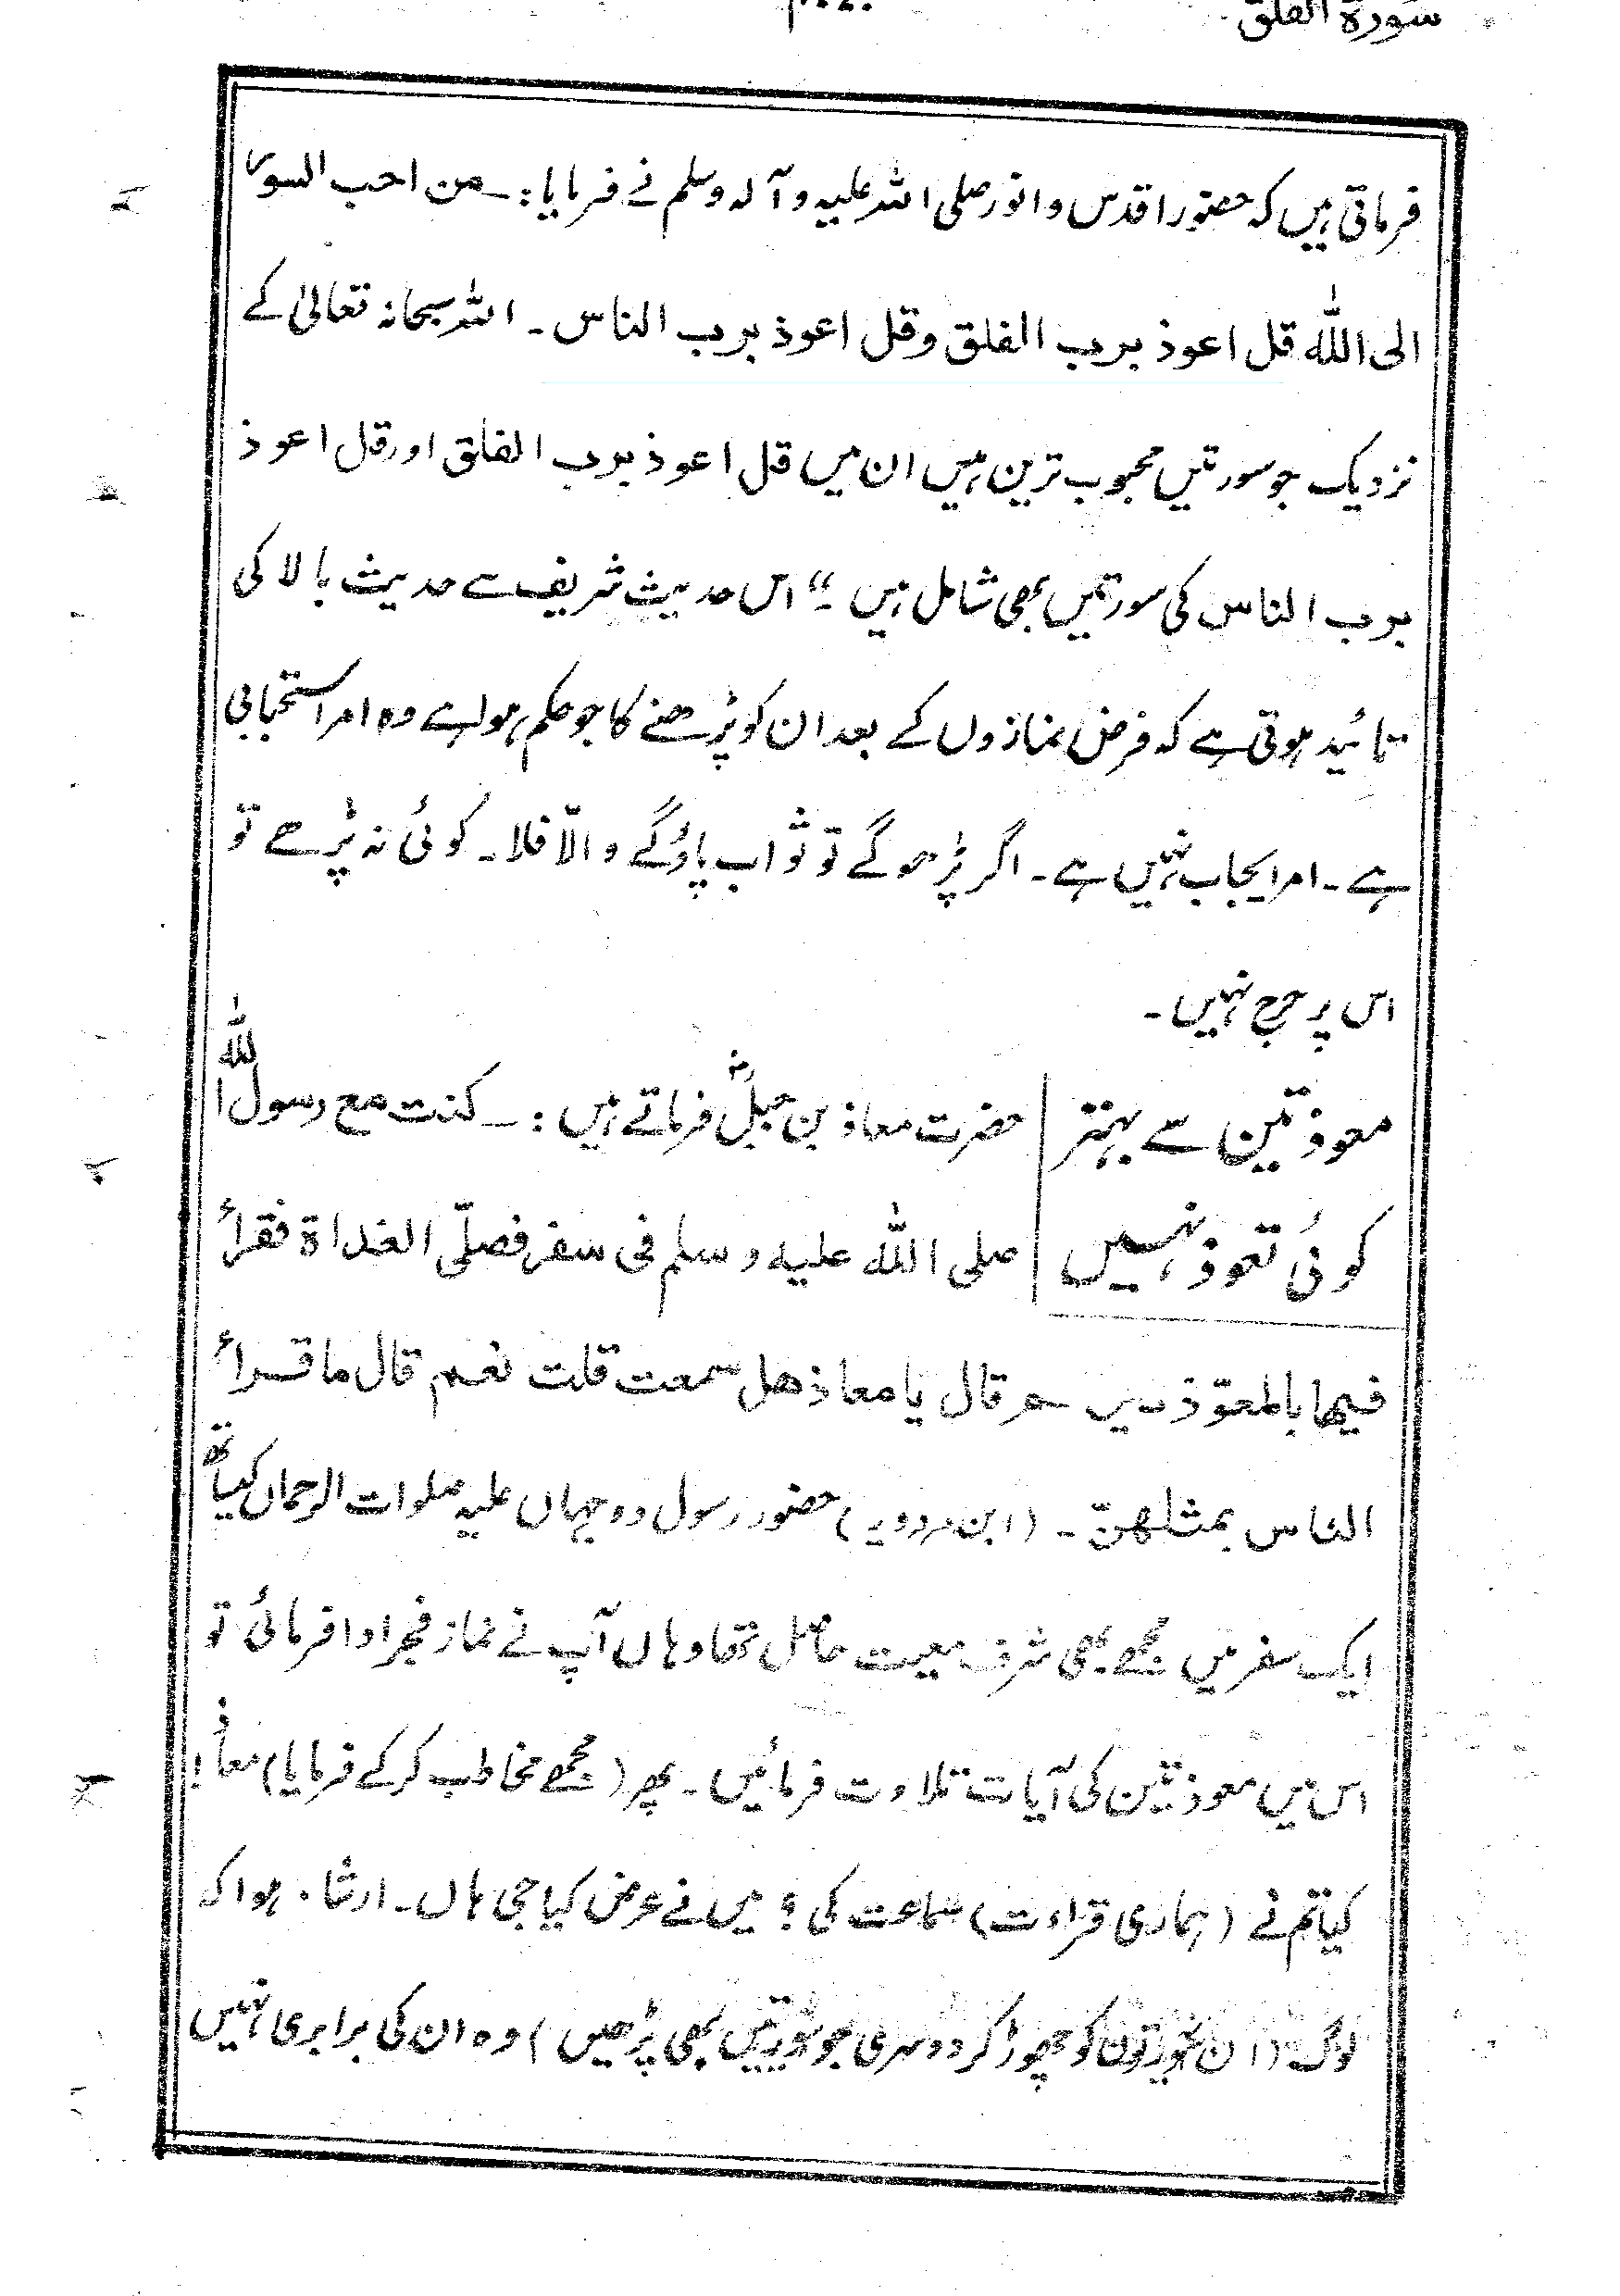 سورة الفلق
فرماتی ہیں کہ حضور اقدس و انور صلی اللہ علیہ و آلہ وسلم نے فرمایا:۔ من احب السور
الی اللہ قل اعوذ برب الفلق وقل اعوذ برب الناس۔ اللہ سبحانہ تعالیٰ کے
نزدیک جو سورتیں محبوب ترین ہیں ان میں قل اعوذ برب الفلق اور قل اعوذ
برب الناس کی سورتیں بھی شامل ہیں۔“ اس حدیث شریف سے حدیث بالا کی
تائید ہوتی ہے کہ فرض نمازوں کے بعد ان کو پڑھنے کا جو حکم ہوا ہے وہ امر استحبابی
ہے۔ امر ایجاب نہیں ہے۔ اگر پڑھو گے تو ثواب پاؤ گے والّا فلا۔ کوئی نہ پڑھے تو
اس پر حرج نہیں۔
معوذتین سے بہتر حضرت معاذ بن جبلؓ فرماتے ہیں:۔ کنت مع رسول اللہ
کوئی تعوذ نہیں صلی اللہ علیہ وسلم فی سفر فصلّی الغداة فقرأ
فیھا بالمعوّذتین ثم قال یا معاذ ھل سمعت قلت نعم قال ما قرأ
الناس بمثلھنّ۔ (ابن مردویہ) حضور رسول دو جہاں علیہ صلوات الرحمان کیساتھ
ایک سفر میں مجھے بھی شرف معیت حاصل تھا وہاں آپ نے نماز فجر ادا فرمائی تو
اس میں معوذتین کی آیات تلاوت فرمائیں۔ پھر (مجھے مخاطب کر کے فرمایا) معاذ!
کیا تم نے (ہماری قراءت) سماعت کی؟ میں نے عرض کیا جی ہاں۔ ارشاد ہوا کہ
لوگ (ان سورتوں کو چھوڑ کر دوسری جو سورتیں بھی پڑھیں) وہ ان کی برابری نہیں